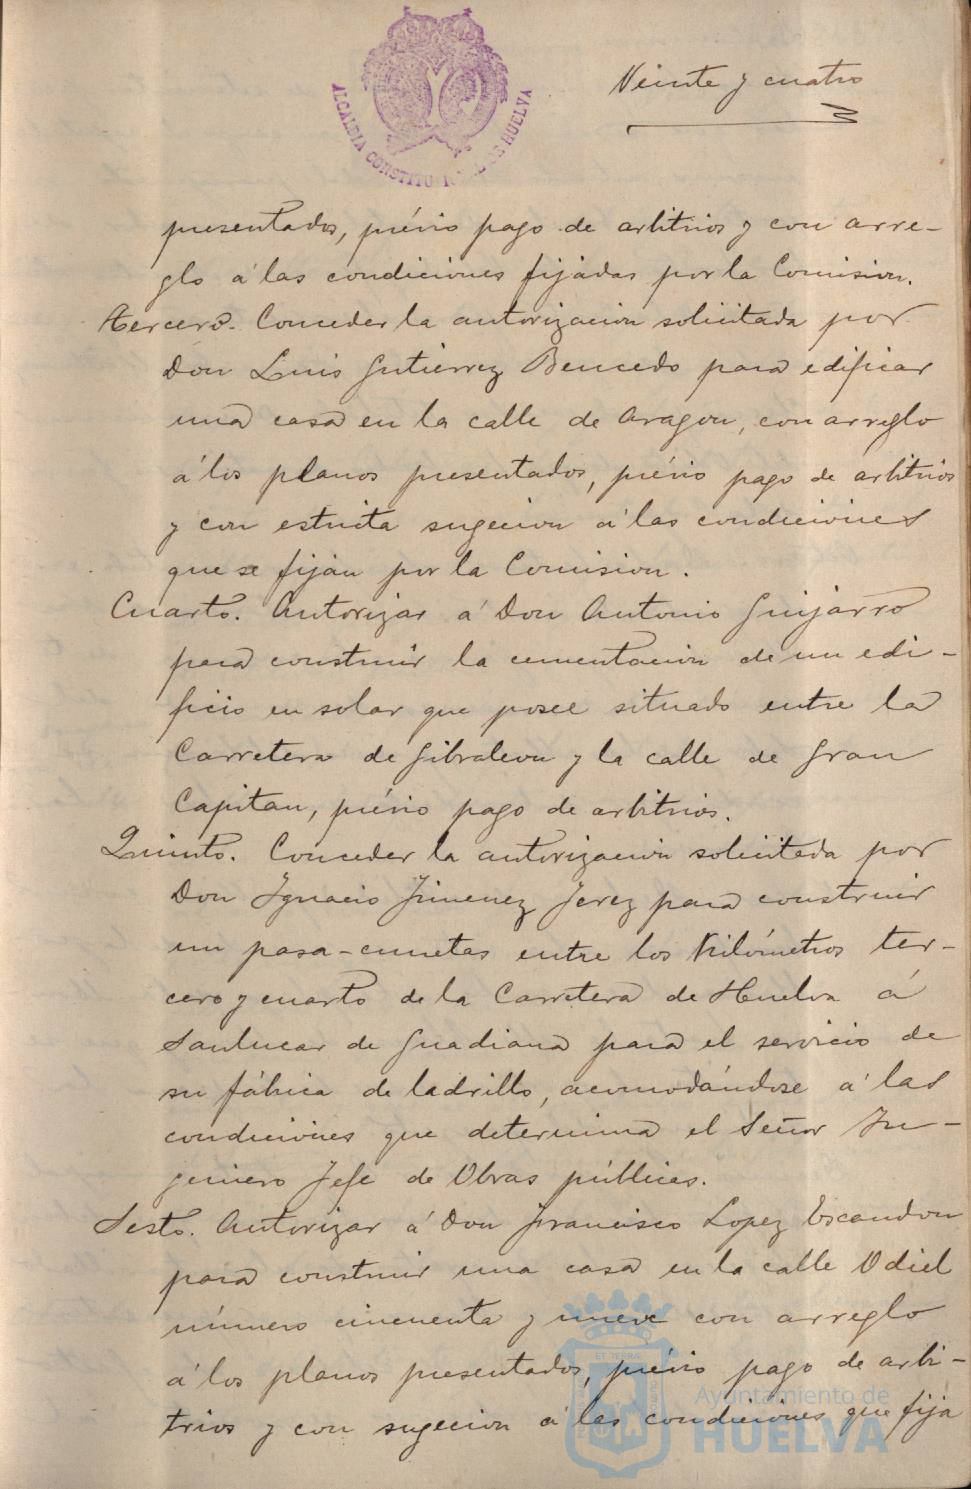 Veinte y cuatro
ALCALDIA CONSTITU DE HUELVA
presentados, prévio pago de arbitrios y con arre-
glo á las condiciones fijadas por la Comision.
Tercero. Conceder la autorizacion solicitada por
Don Luis Gutierrez Bencedo para edificar
una casa en la calle de Aragon, con arreglo
á los planos presentados, prévio pago de arbitrios
y con estricta sugecion á las condiciones
que se fijan por la Comision.
Cuarto. Autorizar á Don Antonio Guijarro
para construir la cimentacion de un edi-
ficio en solar que posee situado entre la
Carretera de Gibraleon y la calle de Gran
Capitan, prévio pago de arbitrios.
Quinto. Conceder la autorizacion solicitada por
Don Ignacio Jimenez Jerez para construir
un pasa-cunetas entre los Kilómetros ter-
cero y cuarto de la Carretera de Huelva á
Sanlucar de Guadiana para el servicio de
su fábrica de ladrillo, acomodándose á las
condiciones que determina el Señor In-
geniero Jefe de Obras públicas.
Sesto. Autorizar á Don Francisco Lopez Escandon
para construir una casa en la calle Odiel
número cincuenta y nueve con arreglo
á los planos presentados, prévio pago de arbi-
trios y con sugecion á las condiciones que fija
Ayuntamiento de
HUELVA